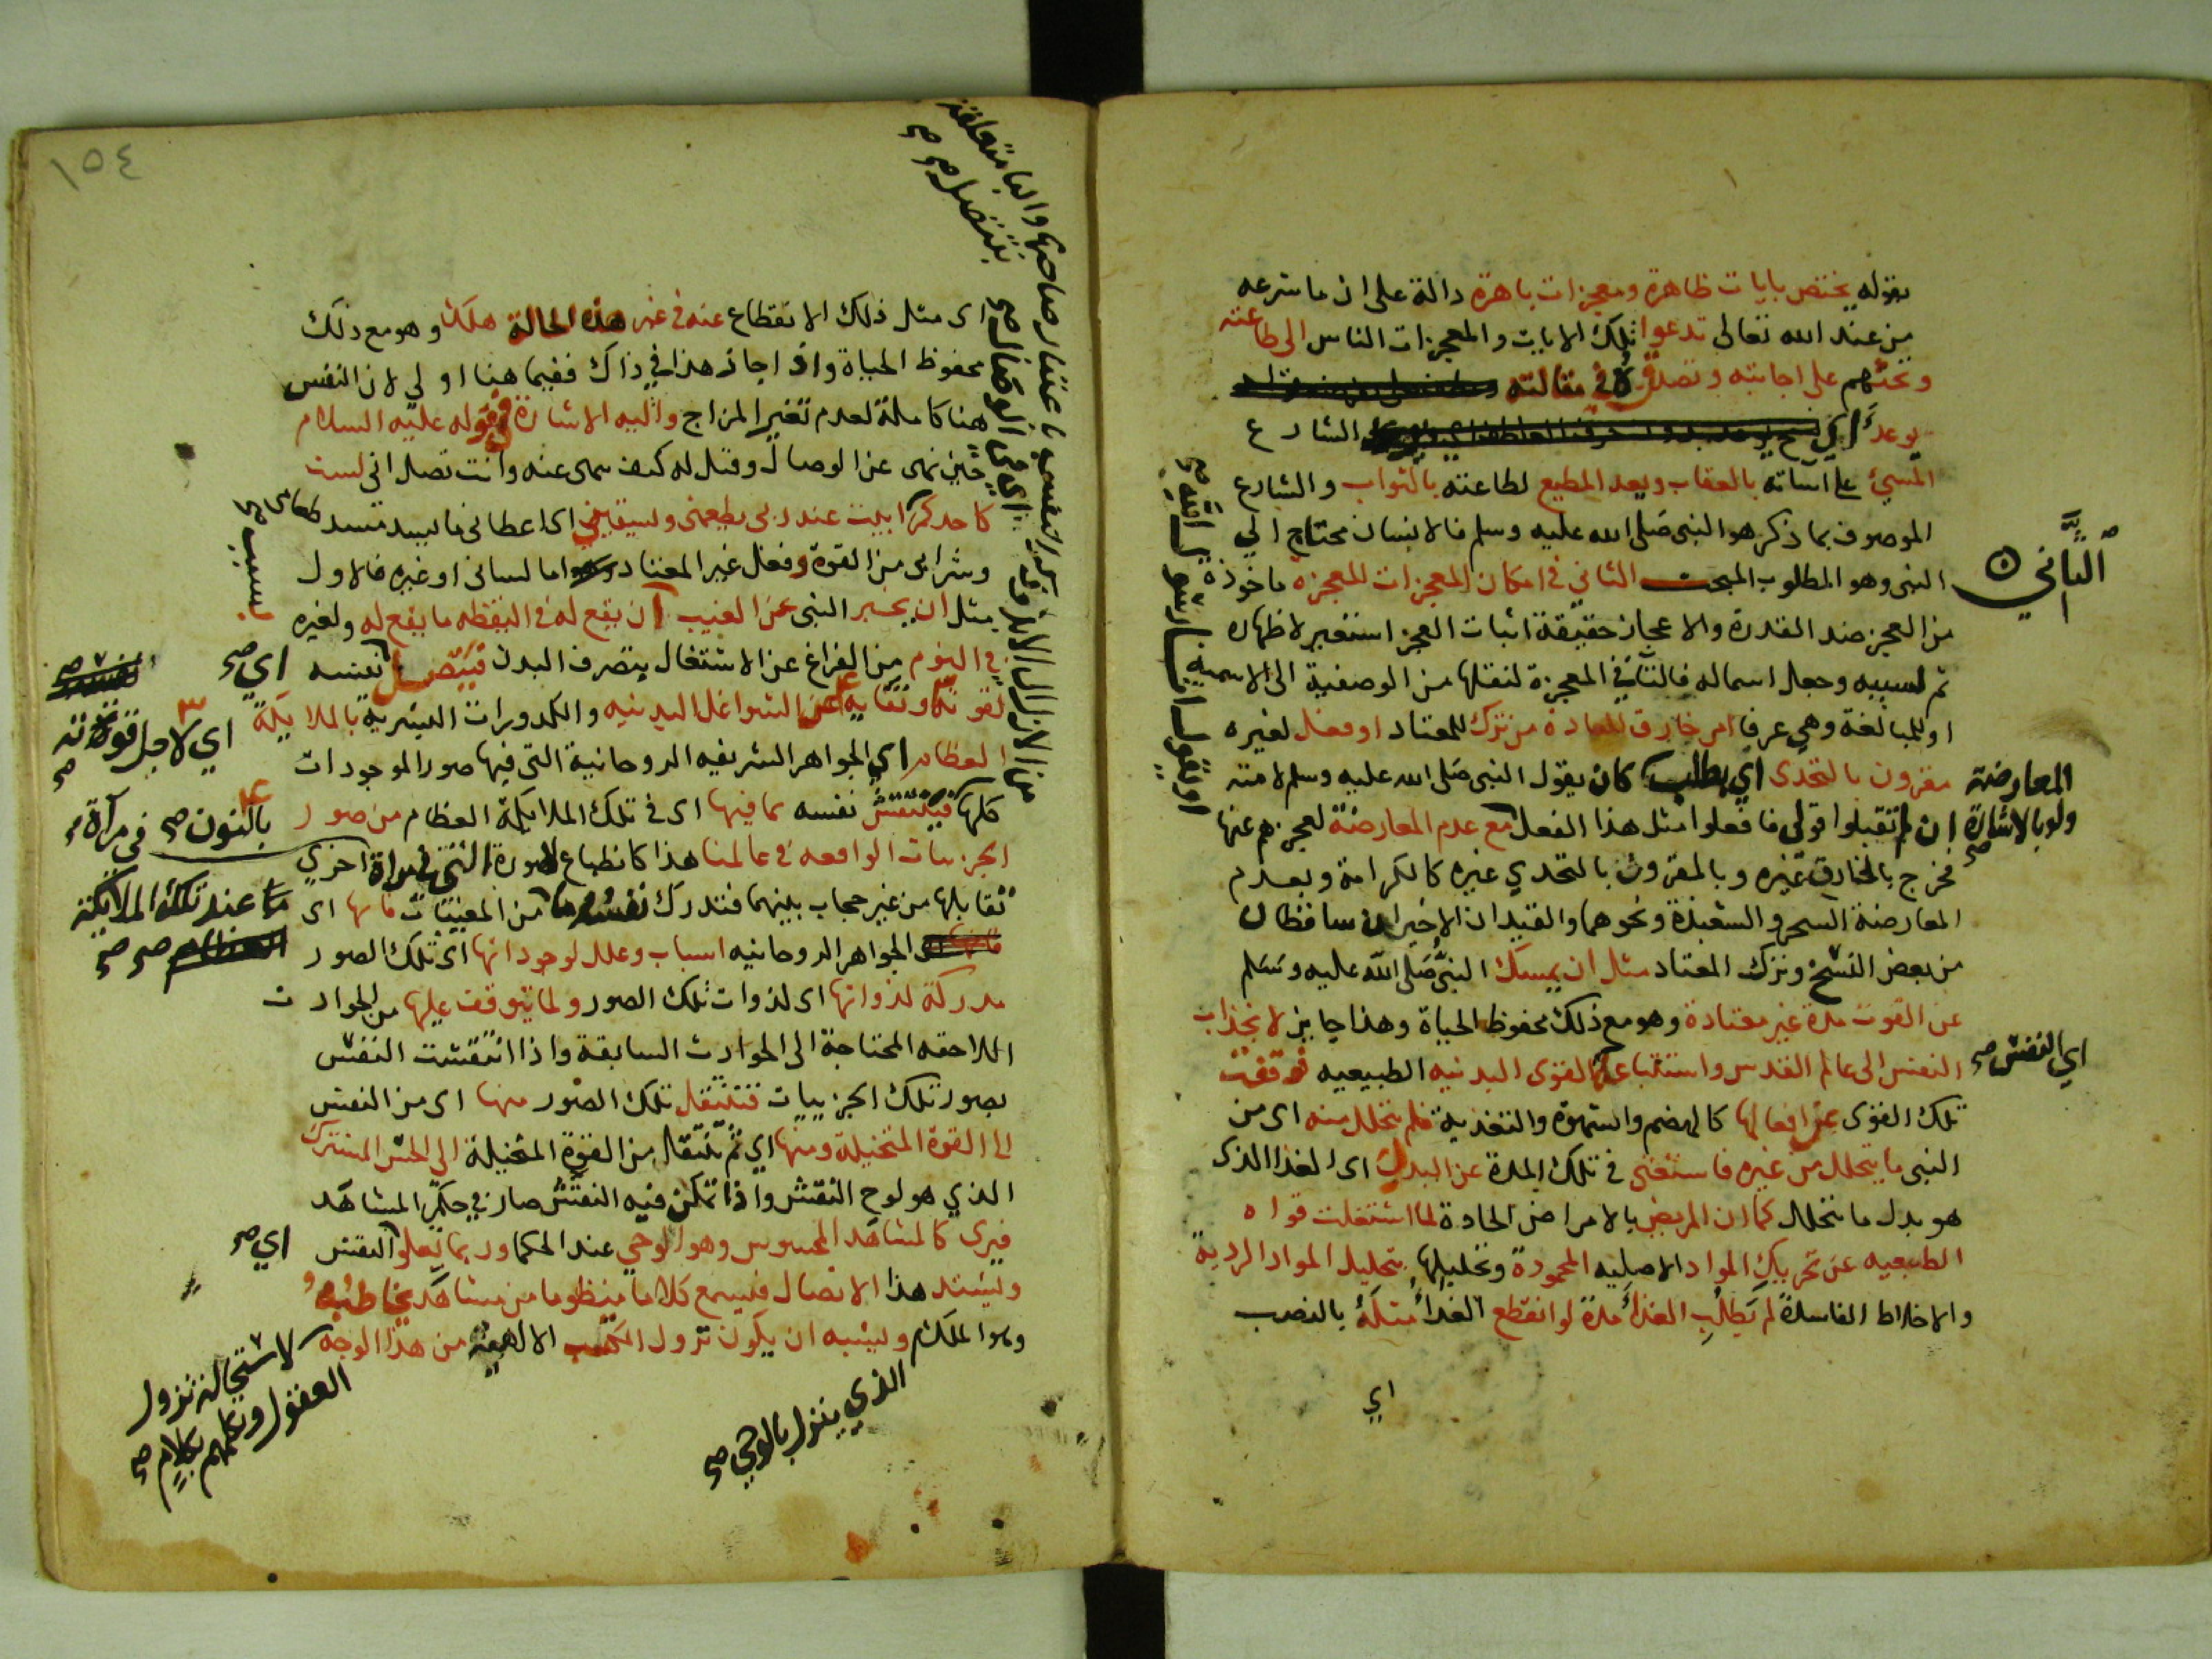 بقوله يختص بايات ظاهرة ومعجزات باهرة دالة على ان ما شرعه
من عند الله تعالى تدعوا تلك الايات والمعجزات الناس الى طاعته
وتحثهم على اجابته وتصدقه في مقالته
يوعد اي الشارع
المسئ على اساته بالعقاب ويعد المطيع لطاعته بالثواب والشارع
الموصوف بما ذكر هو النبى صلى الله عليه وسلم فالانسان محتاج الي
النبى وهو المطلوب المبحث الثاني في امكان المعجزات المعجزة ماخوذة
من العجز ضد القدرة والاعجاز حقيقة اثبات العجز استغير لاظهاره
ثم لسببه وجعل اسما له فالتآ في المعجزة لنقلها من الوصفية الى الاسمية
او للمبالغة وهي عرفا امر خارق للعادة من ترك للمعتاد او فعل لغيره
مقرون بالتحدى اي بطلب كان يقول النبى صلى الله عليه وسلم لامته
ان لم تقبلوا قولى فافعلوا مثل هذا الفعل مع عدم المعارضة لعجزهم عنها
فخرج بالخارق غيره وبالمقرون بالتحدي غيره كالكرامة وبعدم
المعارضة السحر والشعبذة ونحوهما والقيدان الاخيران ساقطان
من بعض النسخ وترك المعتاد مثل ان يمسك النبى صلى الله عليه وسلم
عن القوت مدة غير معتادة وهو مع ذلك محفوظ الحياة وهذا جايز لانجذاب
النفس الى عالم القدس واستتباعها القوى البدنيه الطبيعيه فوقفت
تلك القوى عن افعالها كالهضم والشهوة والتغذية فلم يتحلل منه اى من
النبى ما يتحلل من غيره فاستغنى في تلك المدة عن البدل اى الغذا الذى
هو بدل ما يتحلل كما ان المريض بالامراض الحادة لما اشتغلت قواه
الطبيعيه عن تحريك المواد الاصليه المحمودة وتحليلها بتحليل المواد الردية
والاخلاط الفاسدة لم يطلب الغذآ مدة لو انقطع الغذآ مثله بالنصب
اي
الثاني
المعارضة
ولو بالاشارة صح
اي النفس صح
او يقول انا رسول الله صح
١٥٤
اى مثل ذلك الانقطاع عنه في غير هذه الحالة هلك وهو مع ذلك
محفوظ الحياة واذا جاز هذا في ذاك ففيما هنا اولي لان النفس
هنا كاملة لعدم تغير المزاج واليه الاشارة بقوله عليه السلام
حين نهى عن الوصال وقيل له كيف تنهى عنه وانت تصل انى لست
كاحدكم ابيت عند ربى يطعمنى ويسقينى اى اعطانى ما يسد مسد طعامى صح
وشرابى من القوة وفعل غير المعتاد اما لسانى او غيره فالاول
مثل ان يخبر النبى عن الغيب ان يقع له في اليقظه ما يقع له ولغيره
في النوم من الفراغ عن الاشتغال بتصرف البدن فيتصل نفسه
لقوتها ونقايها عن الشواغل البدنيه والكدورات البشرية بالملايكة
العظام اي الجواهر الشريفه الروحانية التى فيها صور الموجودات
كلها فينتقش نفسه بما فيها اى في تلك الملايكة العظام من صور
الجزييات الواقعه في عالمنا هذا كانطباع صورة اخري
تقابلها من غير حجاب بينهما فتدرك نفسه من المغيبات فانها اى
الجواهر الروحانيه اسباب وعلل لوجوداتها اى تلك الصور
مدركة لذواتها اى لذوات تلك الصور ولما يتوقف عليها من الحوادث
اللاحقه المحتاجة الى الحوادث السابقة واذا انتقشت النفس
بصور تلك الجزييات فتنتقل تلك الصور منها اى من النفس
الى القوة المتخيلة ومنها اي ثم تنتقل من القوة المتخيلة الى الحس المشترك
الذي هو لوح النقش واذا تمكن فيه النقش صار في حكم المشاهد
فيرى كالمشاهد المحسوس وهو الوحي عند الحكما وربما يعلوا النقش
ويشتد هذا الاتصال فيسمع كلاما منظوما من مشاهد يخاطبه
وهو الملك ويشبه ان يكون نزول الكتب الالهية من هذا الوجه
لاستحالة نزول
العقول وتكلمهم بكلام صح
الذي ينزل بالوحي صح
بسبب صح
اي صح
اي لاجل قوته
بالنون صح
في مرآة صح
عند تلك الملايكة
اي صح
والبا متعلقة
بتتصل صح